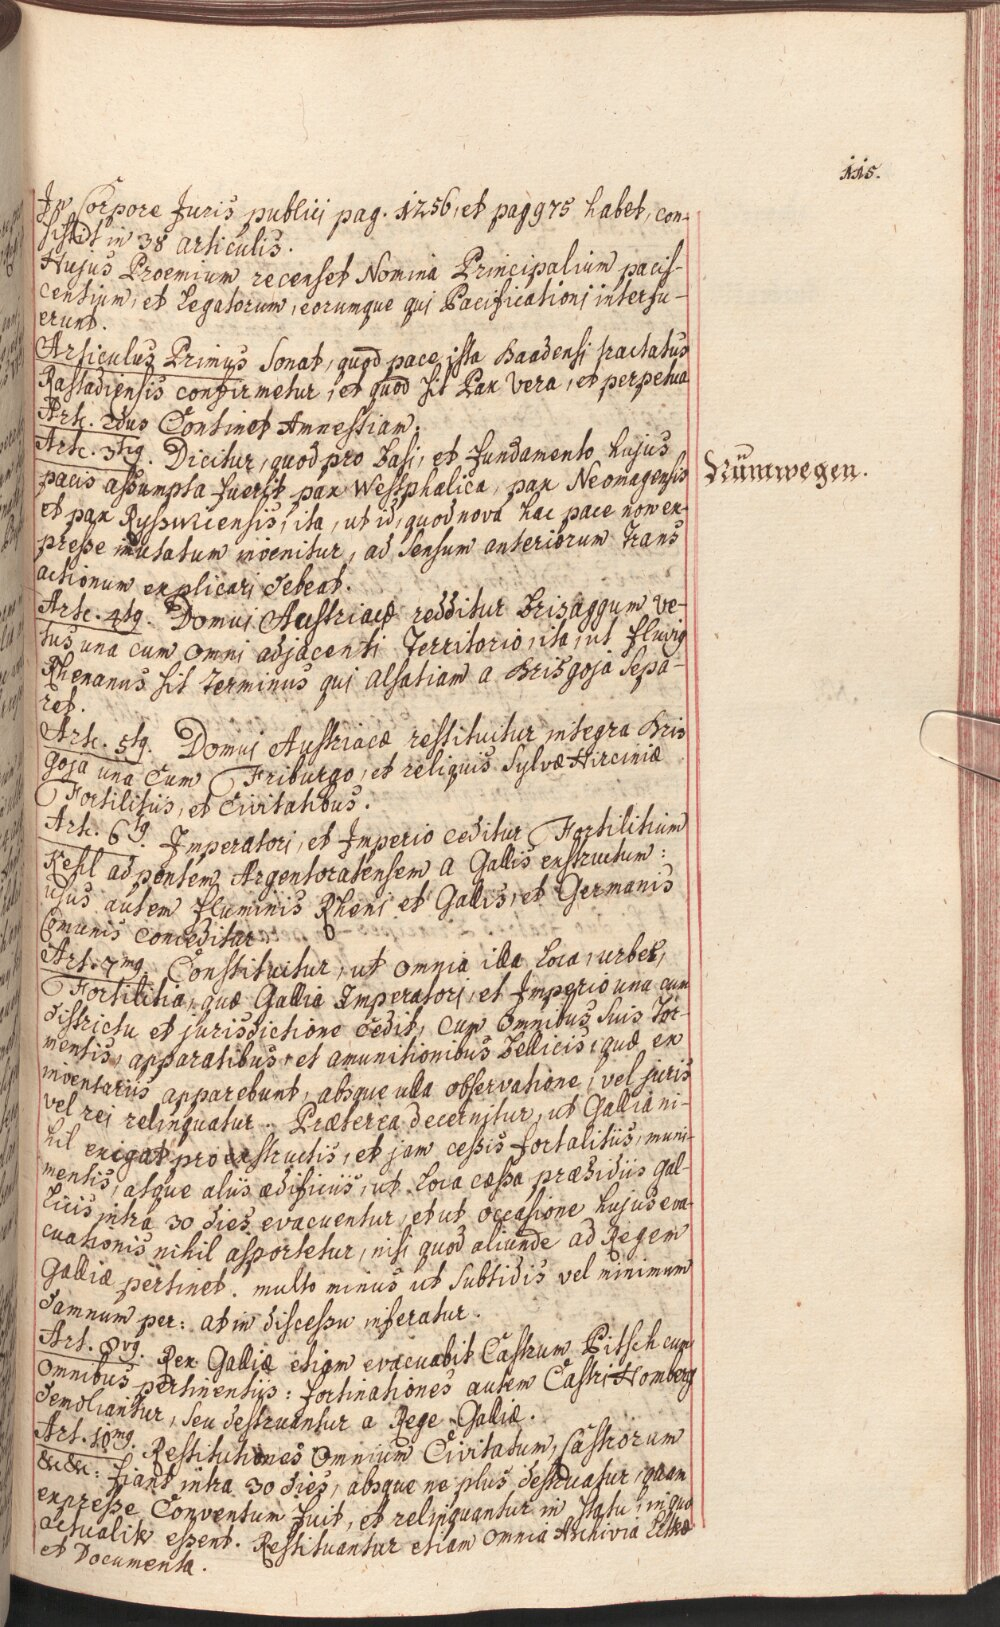 115.
In Corpore Juris publici pag. 1256, et pag 975 habet, con-
sistit in 38 articulis.
Hujus Proemium recenset Nomina Principalium pacis-
centium, et Legatorum, eorumque qui Pacificationi interfu-
erunt.
Articulus Primus Sonat, quod pace ista Baadensi tractatus
Rastadiensis confirmetur, et quod sit Pax vera, et perpetua
Artc. 2dus Continet Amnestiam.
Artc. 3tig. Dicitur, quod pro Basi, et fundamento hujus
pacis assumpta fuerit pax Westphalica, pax Neomagensis
Nümwegen.
et pax Ryswicensis, ita, ut id, quod nova hac pace non ex-
presse mutatum invenitur, ad sensum anteriorum Trans
actionum explicari debeat.
Artc. 4tg. Domui Austriacæ redditur Brisaggum ve-
tus una cum omni adjacenti Territorio, ita, ut fluvig
Rhenanus sit terminus qui alsatiam a Brisgoja sepa-
ret.
Artc. 5tg. Domui Austriacæ restituitur integra Bris
goja una Cum Friburgo, et reliquis Sylvæ Hirciniæ
Fortilitiis, et Civitatibus.
Art. 6tg. Imperatori, et Imperio ceditur Fortilitium
Kehl ad pontem Argentoratensem a Gallis exstructum:
usus autem fluminis Rheni et Gallis, et Germanis
Comunis conceditur.
Art. 7mg. Constituitur, ut omnia illa Loca, urbes,
Fortilitia, quæ Gallia Imperatori, et Imperio una cum
districtu et jurisdictione cedit, cum omnibus suis Tor-
mentis, apparatibus, et amunitionibus Bellicis, quæ ex
inventariis apparebunt, absque ulla observatione, vel juris
vel rei relinquatur. Præterea decernitur, ut Gallia ni-
hil exigat pro exstructis, et jam cessis fortalitiis, muni-
mentis, atque aliis ædificiis, ut Loca cæssa præsidiis Gal-
licis intra 30 dies evacuentur, et ut occasione hujus eva-
cuationis nihil asportetur, nisi quod aliunde ad Regem
Galliæ pertinet. multo minus ut subtidis vel minimum
damnum per: at in discessu inferatur.
Art. 8vg. Rex Galliæ etiam evacuabit Castrum Pitsch cum
omnibus pertinentiis: fortinationes autem Castri Homberg
demoliantur, seu destruantur a Rege Galliæ.
Art. 10mg. Restitutiones omnium Civitatum, Castrorum
&c &c: fiant intra 30 dies, absque ne plus destruatur, quam
expresse Conventum fuit, et relinquantur in statu, in quo
actualitr essent. Restituantur etiam omnia Archivia
et Documenta.